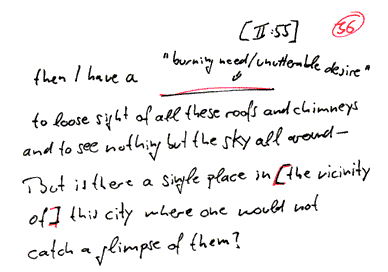 [II:55] 36
then I have a "burning need/unutterable desire"
to loose sight of all these roofs and chimneys
and to see nothing but the sky all around—
But is there a single place in [the vicinity
of] this city where one would not
catch a glimpse of them?